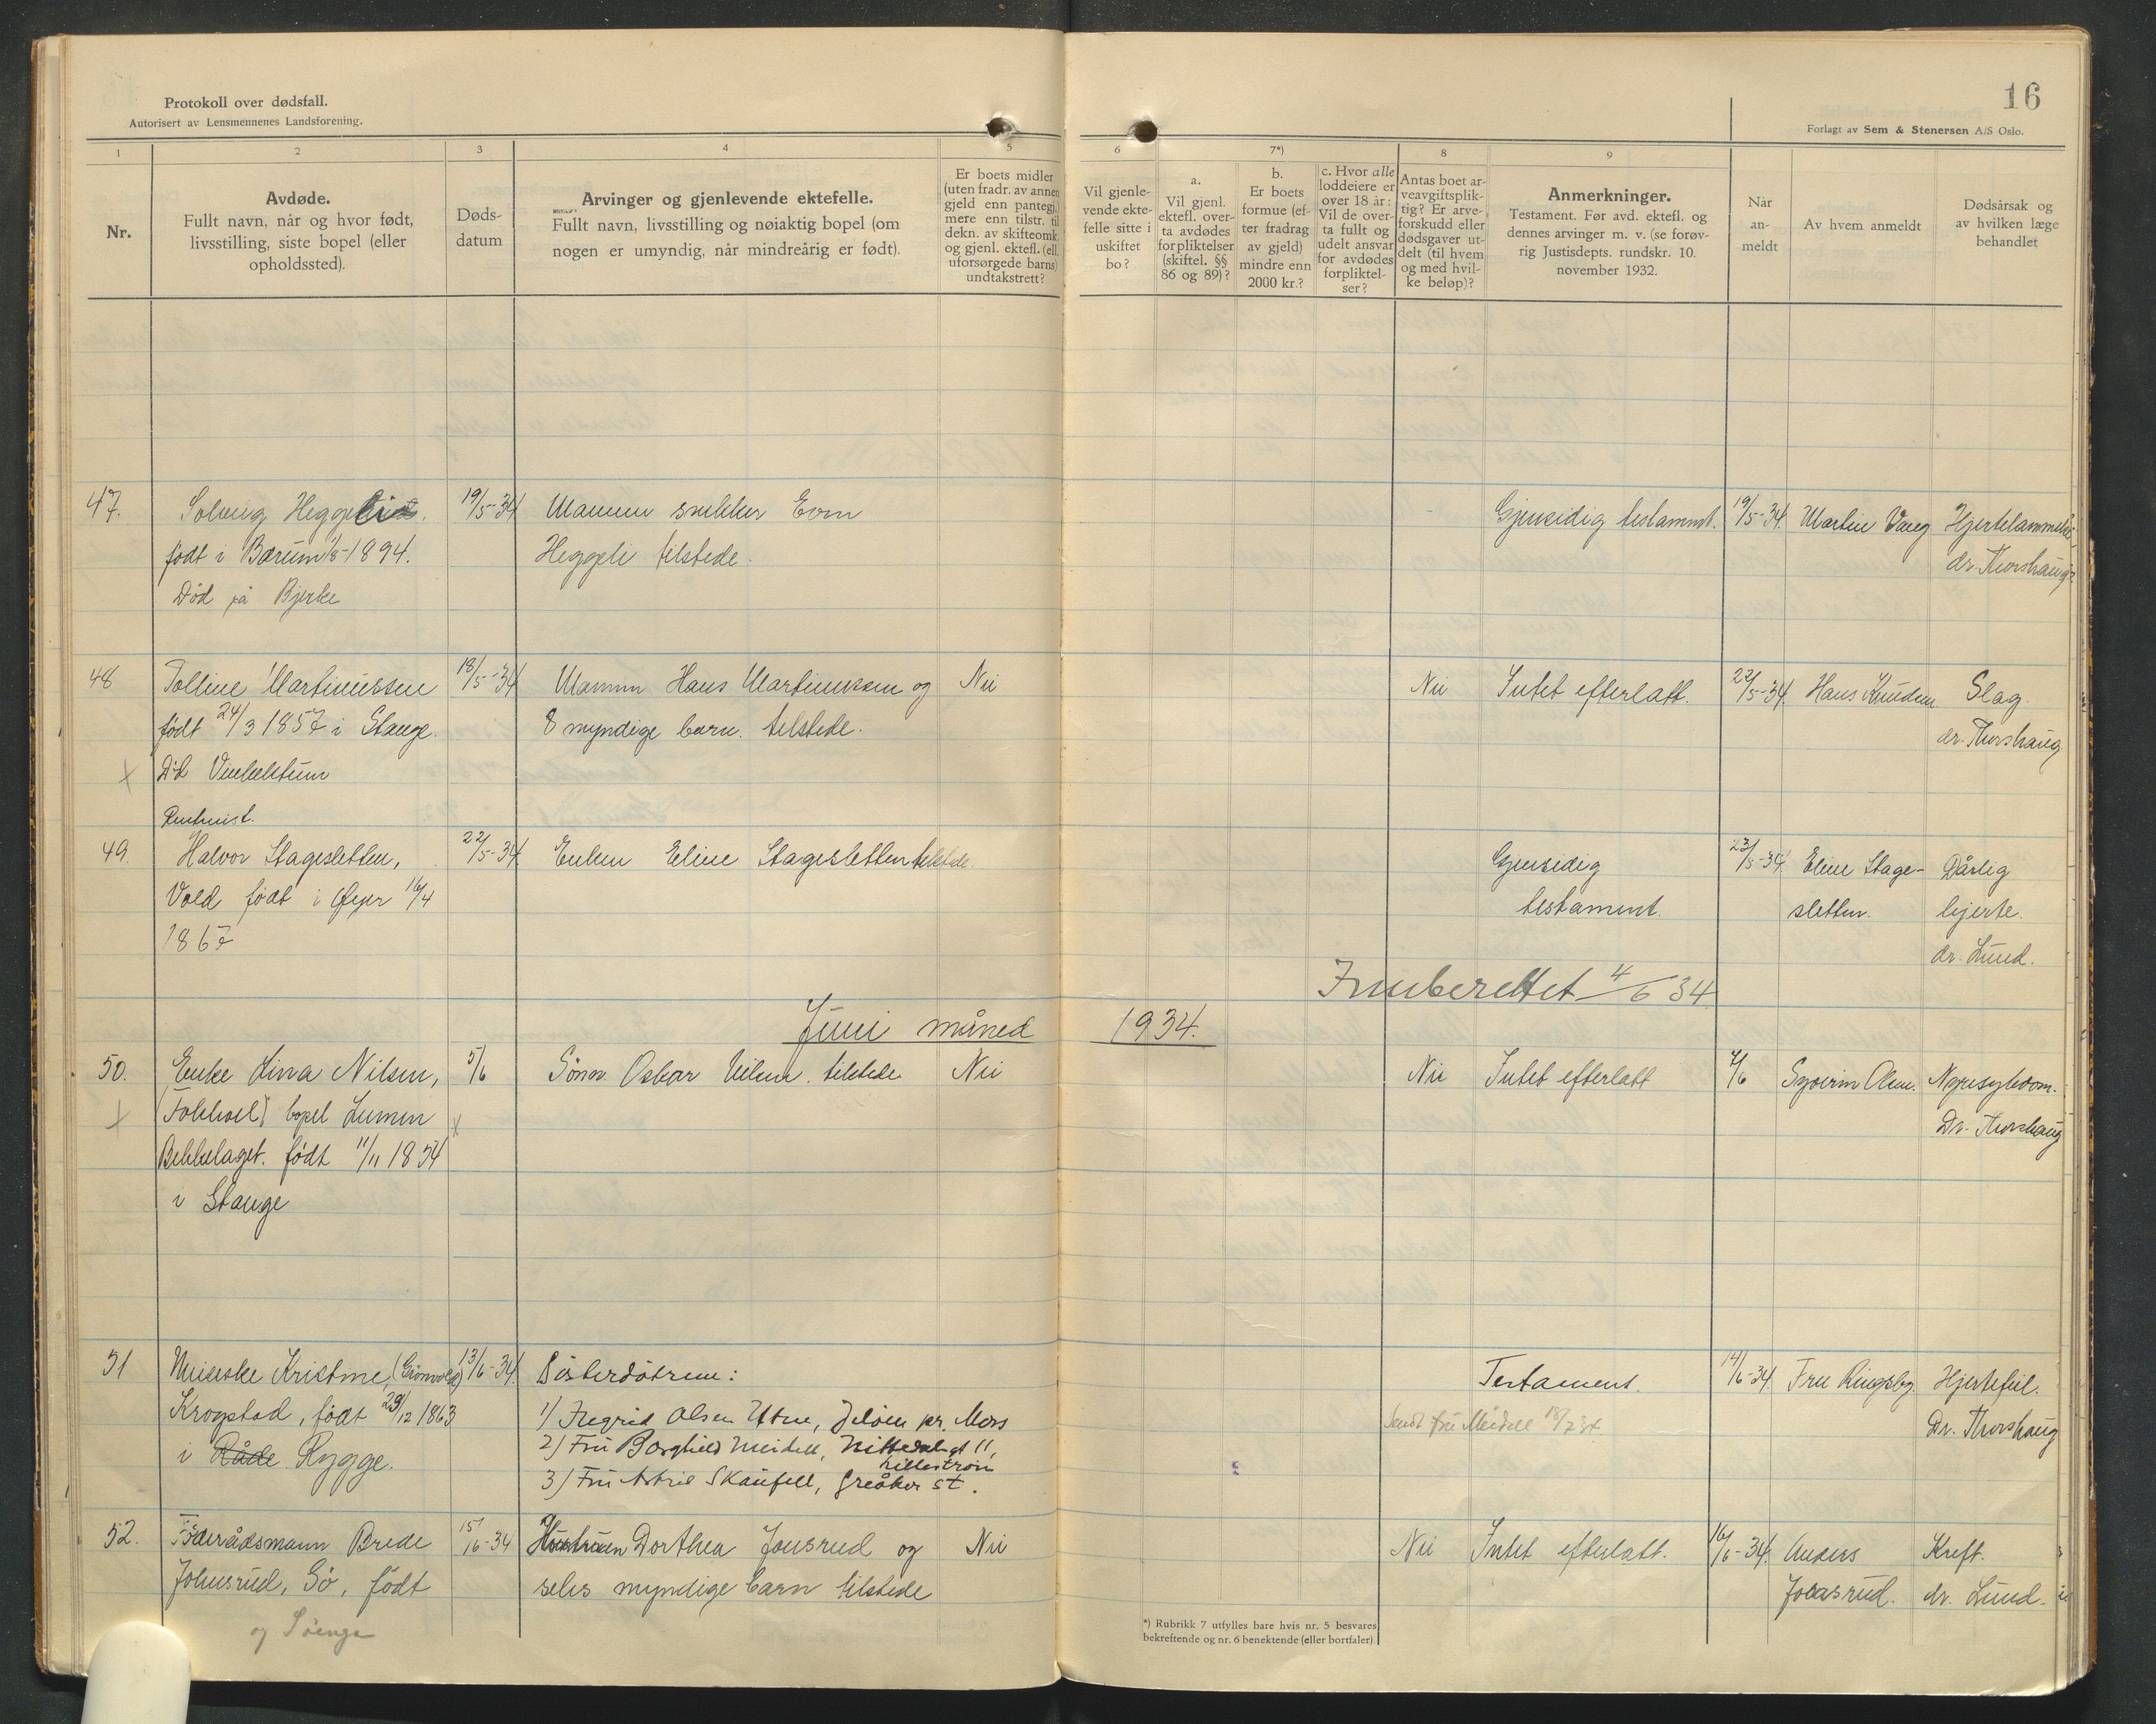 Protokoll over dødsfall.
Autorisert av Lensmennenes Landsforening.
16
Forlagt av Sem & Stenersen A/S Oslo.
1
2
3
4
5
6
7*)
8
9
Nr.
Avdøde.
Fullt navn, når og hvor født,
livsstilling, siste bopel (eller
opholdssted).
Døds-
datum
Arvinger og gjenlevende ektefelle.
Fullt navn, livsstilling og nøiaktig bopel (om
nogen er umyndig, når mindreårig er født).
Er boets midler
(uten fradr. av annen
gjeld enn pantegj.)
mere enn tilstr. til
dekn. av skifteomk.
og gjenl. ektefl. (ell.
uforsørgede barns)
undtakstrett?
Vil gjenle-
vende ekte-
felle sitte i
uskiftet
bo?
a.
Vil gjenl.
ektefl. over-
ta avdødes
forpliktelser
(skiftel. §§
86 og 89)?
b.
Er boets
formue (ef-
ter fradrag
av gjeld)
mindre enn
2000 kr.?
c. Hvor alle
loddeiere er
over 18 år:
Vil de over-
ta fullt og
udelt ansvar
for avdødes
forpliktel-
ser?
Antas boet ar-
veavgiftsplik-
tig? Er arve-
forskudd eller
dødsgaver ut-
delt (til hvem
og med hvil-
ke beløp)?
Anmerkninger.
Testament. Før avd. ektefl. og
dennes arvinger m. v. (se forøv-
rig Justisdepts. rundskr. 10.
november 1932.
Når
an-
meldt
Av hvem anmeldt
Dødsårsak og
av hvilken læge
behandlet
47. Solveig Heggeli 19/5-34 Mannen snekker Even Gjensidig testament. 19/5-34. Martin Vang Hjertelammelse
født i Bærum 1894. Heggeli tilstede. dr. Thorshaug
Død på Bjerke
48 Polline Martinussen 18/5-34 Mannen Hans Martinussen og Nei Nei Intet efterlatt. 22/5-34. Hans Knudsen Slag
født 24/3 1857 i Stange. 8 myndige barn. tilstede. dr. Thorshaug
49. Halvor Stagesletten, 22/5-34 Enken Eline Stagesletten tilstede. Gjensidig 23/5-34. Eline Stage- Dårlig
Vold født i Øyer 16/4 testament. sletten. hjerte.
1867 dr. Lund.
Innberettet 4/6 34
Juni måned 1934.
50. Enke Lina Nilsen, 5/6 Sønn Oskar Nilsen. tilstede Nei Nei Intet efterlatt 7/6 Syverin Olsen. Nyresykdom.
bopel Dr. Thorshaug
Bekkelaget. født 11/11 1854
i Stange
51 Kristine (Grønvold) 13/6-34. Søsterdøtrene: Testament. 14/6-34. Fru Ringsby Hjertefeil.
Krogstad, født 29/12 1863 1) Ingrid Olsen Utne, Jeløen pr. Moss Sendt fru Meidell Dr. Thorshaug
i Råde Rygge. 2) Fru Borghild Meidell, Nittedalsgt 11,
Lillestrøm
3) Fru Astrid Skaufell, Greåker st.
52. Føderådsmann Brede 15/6-34 Hustruen Dorthea Jonsrud og Nei Nei Intet efterlatt. 16/6-34. Anders Kreft.
Johnsrud, Gø, født seks myndige barn tilstede Jonsrud. dr. Lund.
*) Rubrikk 7 utfylles bare hvis nr. 5 besvares
bekreftende og nr. 6 benektende (eller bortfaler)